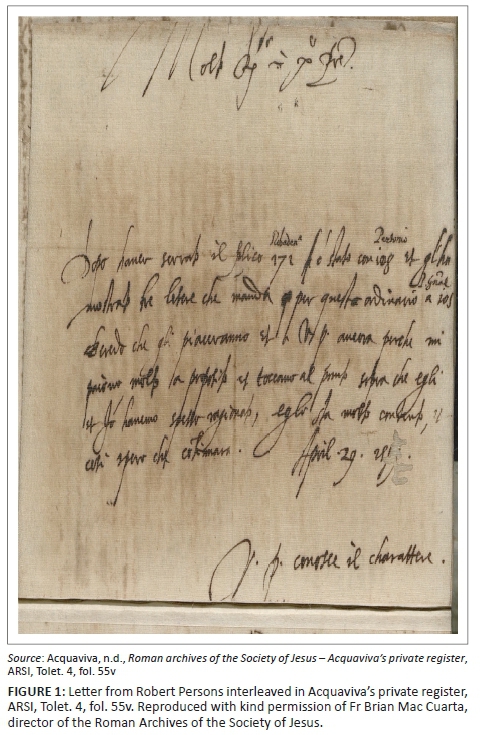 Dopo haver serrato il plico 171 è stato con
mostrato tre litere che manda per questo ordinario a
Credo che gli piaceranno et a V. P. ancora perche mi
molto a proposito et toccano al punto sopra che egli
et io havemo spesso ragionato, egli sta molto contento, et
così spero che continuarà. April. 29.
V. P. conosce il charattere.
Source: Acquaviva, n.d., Roman archives of the Society of Jesus – Acquaviva's private register,
ARSI, Tolet. 4, fol. 55v
FIGURE 1: Letter from Robert Persons interleaved in Acquaviva's private register,
ARSI, Tolet. 4, fol. 55v. Reproduced with kind permission of Fr Brian Mac Cuarta,
director of the Roman Archives of the Society of Jesus.